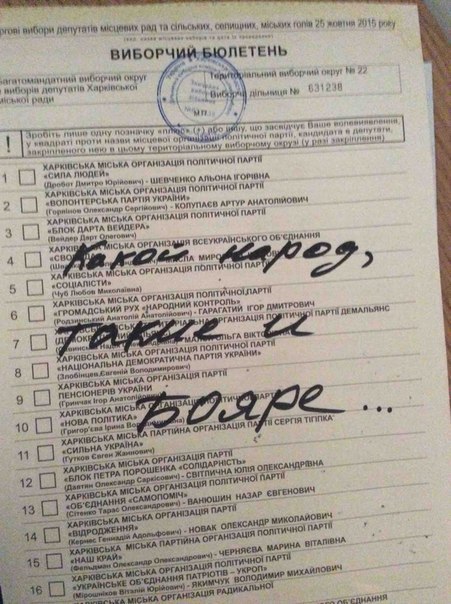 ргові вибори депутатів місцевих рад та сільських, селищних, міських голів 25 жовтня 2015 року
ВИБОРЧИЙ БЮЛЕТЕНЬ
Багатомандатний виборчий округ
Територіальний виборчий округ № 22
з виборів депутатів Харківської
міської ради
Виборча дільниця № 631238
! Зробіть лише одну позначку «плюс» (+) або іншу, що засвідчує Ваше волевиявлення
у квадраті проти назви місцевої організації політичної партії, кандидата в депутати,
закріпленого нею в цьому територіальному виборчому окрузі (у разі закріплення)
1 ХАРКІВСЬКА МІСЬКА ОРГАНІЗАЦІЯ ПОЛІТИЧНОЇ ПАРТІЇ
«СИЛА ЛЮДЕЙ»
(Дробот Дмитро Юрійович) - ШЕВЧЕНКО АЛЬОНА ІГОРІВНА
2 ХАРКІВСЬКА МІСЬКА ОРГАНІЗАЦІЯ ПОЛІТИЧНОЇ ПАРТІЇ
«ВОЛОНТЕРСЬКА ПАРТІЯ УКРАЇНИ»
(Горяінов Олександр Сергійович) - КОЛУПАЄВ АРТУР АНАТОЛІЙОВИЧ
3 ХАРКІВСЬКА МІСЬКА ОРГАНІЗАЦІЯ ПОЛІТИЧНОЇ ПАРТІЇ
«БЛОК ДАРТА ВЕЙДЕРА»
(Вейдер Дарт Олегович)
4 ХАРКІВСЬКА МІСЬКА ОРГАНІЗАЦІЯ ВСЕУКРАЇНСЬКОГО ОБ'ЄДНАННЯ
Какой народ,
5 ХАРКІВСЬКА МІСЬКА ОРГАНІЗАЦІЯ ПОЛІТИЧНОЇ ПАРТІЇ
«СОЦІАЛІСТИ»
(Чуб Любов Миколаївна)
6 ХАРКІВСЬКА МІСЬКА ОРГАНІЗАЦІЯ ПОЛІТИЧНОЇ ПАРТІЇ
«ГРОМАДСЬКИЙ РУХ «НАРОДНИЙ КОНТРОЛЬ»
Анатолій Анатолійович) - ГАРАГАТИЙ ІГОР ДМИТРОВИЧ
7 ХАРКІВСЬКА МІСЬКА ОРГАНІЗАЦІЯ ПОЛІТИЧНОЇ ПАРТІЇ ДЕМАЛЬЯНС
такие и
8 ХАРКІВСЬКА МІСЬКА ОРГАНІЗАЦІЯ ПОЛІТИЧНОЇ ПАРТІЇ
«НАЦІОНАЛЬНА ДЕМОКРАТИЧНА ПАРТІЯ УКРАЇНИ»
(Злобінцев Євгений Володимирович)
9 ХАРКІВСЬКА МІСЬКА ОРГАНІЗАЦІЯ ПАРТІЇ
ПЕНСІОНЕРІВ УКРАЇНИ
(Гринчак Ігор Анатолійович)
Бояре...
10 ХАРКІВСЬКА МІСЬКА ОРГАНІЗАЦІЯ ПОЛІТИЧНОЇ ПАРТІЇ
«НОВА ПОЛІТИКА»
(Григор'єва Ірина
11 ХАРКІВСЬКА МІСЬКА ПАРТІЙНА ОРГАНІЗАЦІЯ ПАРТІЇ СЕРГІЯ ТІГІПКА
«СИЛЬНА УКРАЇНА»
(Гутков Євген Жаннович)
12 ХАРКІВСЬКА МІСЬКА ОРГАНІЗАЦІЯ ПАРТІЇ
«БЛОК ПЕТРА ПОРОШЕНКА «СОЛІДАРНІСТЬ»
(Давтян Олександр Саркісович) - СВІТЛИЧНА ЮЛІЯ ОЛЕКСАНДРІВНА
13 ХАРКІВСЬКА МІСЬКА ОРГАНІЗАЦІЯ ПОЛІТИЧНОЇ ПАРТІЇ
«ОБ'ЄДНАННЯ «САМОПОМІЧ»
(Сітенко Тарас Олександрович) - ВАНЮШИН НАЗАР ЄВГЕНОВИЧ
14 ХАРКІВСЬКА МІСЬКА ОРГАНІЗАЦІЯ ПОЛІТИЧНОЇ ПАРТІЇ
«ВІДРОДЖЕННЯ»
(Кернес Геннадій Адольфович) - НОВАК ОЛЕКСАНДР МИКОЛАЙОВИЧ
15 ХАРКІВСЬКА МІСЬКА ПАРТІЙНА ОРГАНІЗАЦІЯ ПОЛІТИЧНОЇ ПАРТІЇ
«НАШ КРАЙ»
(Фельдман Олександр Олександрович) - ЧЕРНЯЄВА МАРИНА ВІТАЛІЇВНА
16 ХАРКІВСЬКА МІСЬКА ОРГАНІЗАЦІЯ ПОЛІТИЧНОЇ ПАРТІЇ
«УКРАЇНСЬКЕ ОБ'ЄДНАННЯ ПАТРІОТІВ – УКРОП»
(Мірошніков Віталій Юрійович) - ЯКИМЧУК ВОЛОДИМИР МИХАЙЛОВИЧ
ХАРКІВСЬКА МІСЬКА ОРГАНІЗАЦІЯ РАДИКАЛЬНОЇ